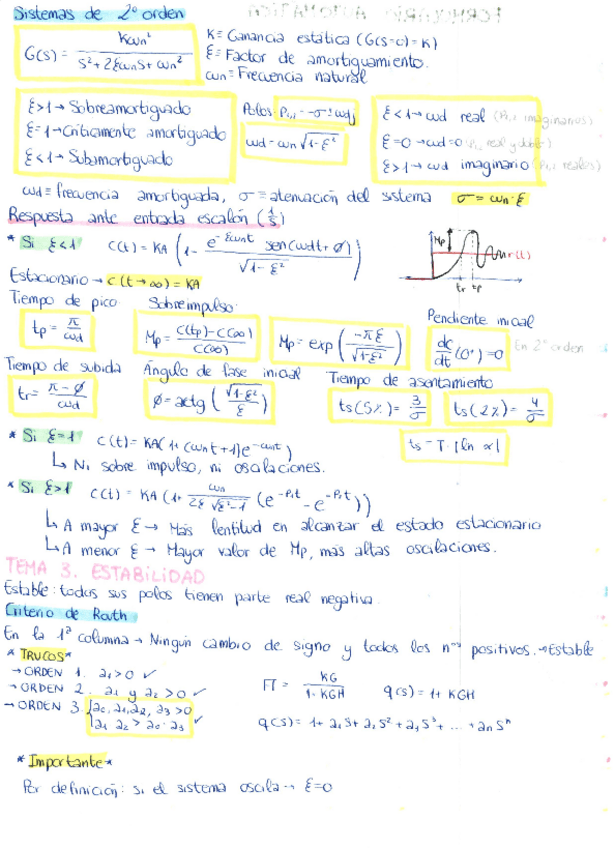 Sistemas de 2º orden
G(s) = Kωn² / (s² + 2ξωns + ωn²)
K = Ganancia estática (G(s=0) = K)
ξ = Factor de amortiguamiento.
ωn = Frecuencia natural
ξ>1 → Sobreamortiguado
ξ=1 → Críticamente amortiguado
ξ<1 → Subamortiguado
Polos: P₁,₂ = -σ ± ωdj
ωd = ωn √(1-ξ²)
ξ<1 → ωd real (P₁,₂ imaginarios)
ξ=0 → ωd=0 (P₁,₂ real y doble)
ξ>1 → ωd imaginario (P₁,₂ reales)
ωd = frecuencia amortiguada, σ = atenuación del sistema σ = ωn·ξ
Respuesta ante entrada escalón (1/s)
* Si ξ<1 c(t) = KA (1 - e^(-ξωnt) sen(ωdt + ø) / √(1-ξ²))
Mp
r(t)
tr tp
Estacionario → c(t→∞) = KA
Tiempo de pico Sobreimpulso:
Pendiente inicial
tp = π/ωd
Mp = (c(tp) - c(∞)) / c(∞)
Mp = exp (-πξ / √(1-ξ²))
dc/dt (0⁺) = 0 En 2º orden
Tiempo de subida Ángulo de fase inicial Tiempo de asentamiento
tr = (π - ø)/ωd
ø = actg (√(1-ξ²) / ξ)
ts(5%) = 3/σ
ts(2%) = 4/σ
* Si ξ=1 c(t) = KA(1+(ωnt+1)e^(-ωnt))
ts = T·|ln α|
↳ Ni sobre impulso, ni oscilaciones.
* Si ξ>1 c(t) = KA (1+ ωn / (2ξ√(ξ²-1)) (e^(-P₁t) - e^(-P₂t)))
↳ A mayor ξ → Más lentitud en alcanzar el estado estacionario
↳ A menor ξ → Mayor valor de Mp, más altas oscilaciones.
TEMA 3. ESTABILIDAD
Estable: todos sus polos tienen parte real negativa.
Criterio de Routh
En la 1ª columna → Ningún cambio de signo y todos los nºs positivos. → Estable
* TRUCOS *
→ ORDEN 1. a₁>0 ✓
→ ORDEN 2. a₁ y a₂>0 ✓
→ ORDEN 3. { a₀, a₁, a₂, a₃ >0
a₁ a₂ > a₀·a₃ ✓
FT = KG / (1-KGH)
q(s) = 1 + KGH
q(s) = 1 + a₁s + a₂s² + a₃s³ + ... + ans^n
* Importante *
Por definición: si el sistema oscila → ξ=0